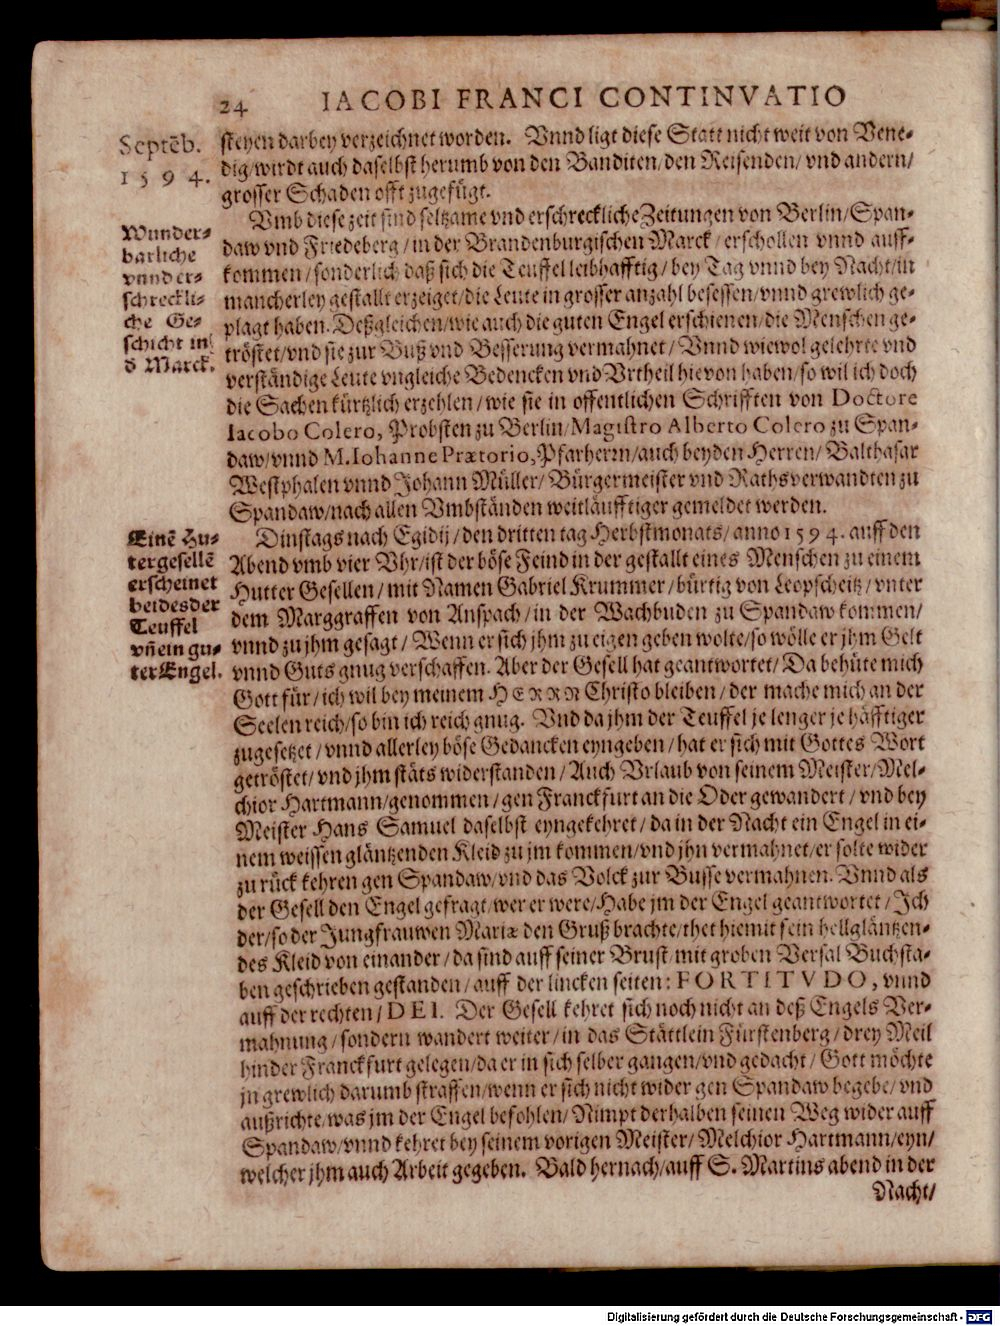 24 IACOBI FRANCI CONTINVATIO
Septēb.
1594.
steyen darbey verzeichnet worden. Vnnd ligt diese Statt nicht weit von Vene-
dig/wirdt auch daselbst herumb von den Banditen/den Reisenden/vnd andern/
grosser Schaden offt zugefügt.
Wunder-
barliche
vnnd er-
schreckli-
che Ge-
schicht in
d Marck.
Vmb diese zeit sind seltzame vnd erschreckliche Zeitungen von Berlin/Span-
daw vnd Friedeberg/in der Brandenburgischen Marck/erschollen vnnd auff-
kommen/sonderlich daß sich die Teuffel leibhafftig/bey Tag vnnd bey Nacht/in
mancherley gestallt erzeiget/die Leute in grosser anzahl besessen/vnnd grewlich ge-
plagt haben. Deßgleichen/wie auch die guten Engel erschienen/die Menschen ge-
tröstet/vnd sie zur Buß vnd Besserung vermahnet/Vnnd wiewol gelehrte vnd
verständige Leute vngleiche Bedencken vnd Vrtheil hievon haben/so wil ich doch
die Sachen kürtzlich erzehlen/wie sie in offentlichen Schrifften von Doctore
Iacobo Colero, Probsten zu Berlin/Magistro Alberto Colero zu Span-
daw/vnnd M. Iohanne Prætorio, Pfarherrn/auch beyden Herren/Balthasar
Westphalen vnnd Johann Müller/Bürgermeister vnd Rathsverwandten zu
Spandaw/nach allen Vmbständen weitläufftiger gemeldet werden.
Einē Hu-
tergesellē
erscheinet
beides der
Teuffel
vñ ein gu-
ter Engel.
Dinstags nach Egidij/den dritten tag Herbstmonats/anno 1594. auff den
Abend vmb vier Vhr/ist der böse Feind in der gestallt eines Menschen zu einem
Hutter Gesellen/mit Namen Gabriel Krummer/bürtig von Leopscheitz/vnter
dem Marggraffen von Anspach/in der Wachbuden zu Spandaw kommen/
vnnd zu jhm gesagt/Wenn er sich jhm zu eigen geben wolte/so wölle er jhm Gelt
vnnd Guts gnug verschaffen. Aber der Gesell hat geantwortet/Da behüte mich
Gott für/ich wil bey meinem HERRN Christo bleiben/der mache mich an der
Seelen reich/so bin ich reich gnug. Vnd da jhm der Teuffel je lenger je häfftiger
zugesetzet/vnnd allerley böse Gedancken eyngeben/hat er sich mit Gottes Wort
getröstet/vnd jhm stäts widerstanden/Auch Vrlaub von seinem Meister/Mel-
chior Hartmann/genommen/gen Franckfurt an die Oder gewandert/vnd bey
Meister Hans Samuel daselbst eyngekehret/da in der Nacht ein Engel in ei-
nem weissen gläntzenden Kleid zu jm kommen/vnd jhn vermahnet/er solte wider
zu rück kehren gen Spandaw/vnd das Volck zur Busse vermahnen. Vnnd als
der Gesell den Engel gefragt/wer er were/Habe jm der Engel geantwortet/Jch
der/so der Jungfrauwen Mariæ den Gruß brachte/thet hiemit sein hellgläntzen-
des Kleid von einander/da sind auff seiner Brust mit groben Versal Buchsta-
ben geschrieben gestanden/auff der lincken seiten: FORTITVDO, vnnd
auff der rechten/DEI. Der Gesell kehret sich noch nicht an deß Engels Ver-
mahnung/sondern wandert weiter/in das Stättlein Fürstenberg/drey Meil
hinder Franckfurt gelegen/da er in sich selber gangen/vnd gedacht/Gott möchte
jn grewlich darumb straffen/wenn er sich nicht wider gen Spandaw begebe/vnd
außrichte/was jm der Engel befohlen/Nimpt derhalben seinen Weg wider auff
Spandaw/vnnd kehret bey seinem vorigen Meister/Melchior Hartmann/eyn/
welcher jhm auch Arbeit gegeben. Bald hernach/auff S. Martins abend in der
Nacht/
Digitalisierung gefördert durch die Deutsche Forschungsgemeinschaft - DFG